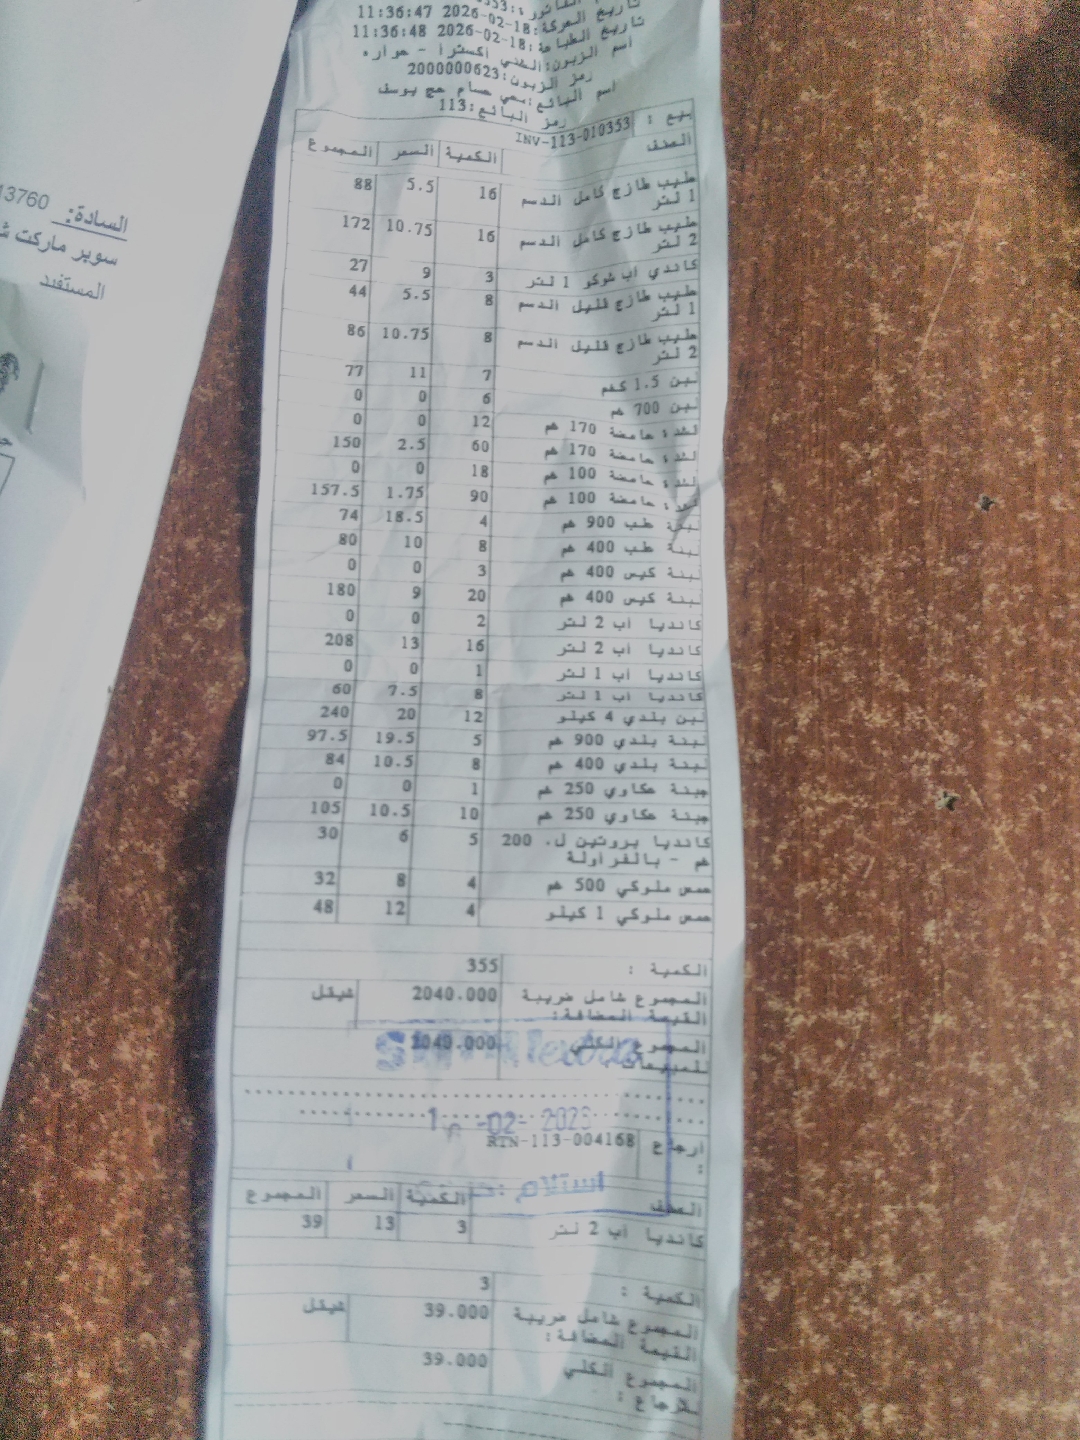 تاريخ الحركة:18-02-2026 11:36:47
تاريخ الطباعة:18-02-2026 11:36:48
اسم الزبون:الشني أكسترا - حواره
رمز الزبون:2000000623
اسم البائع:يحيى حسام حج يوسف
رمز البائع:113
بيع : INV-113-010353
الصنف الكمية السعر المجموع
حليب طازج كامل الدسم 1 لتر 16 5.5 88
حليب طازج كامل الدسم 2 لتر 16 10.75 172
كاندي أب شوكو 1 لتر 3 9 27
حليب طازج قليل الدسم 1 لتر 8 5.5 44
حليب طازج قليل الدسم 2 لتر 8 10.75 86
لبن 1.5 كغم 7 11 77
لبن 700 غم 6 0 0
حامضة 170 غم 12 0 0
حامضة 170 غم 60 2.5 150
حامضة 100 غم 18 0 0
حامضة 100 غم 90 1.75 157.5
لبنة طب 900 غم 4 18.5 74
لبنة طب 400 غم 8 10 80
لبنة كيس 400 غم 3 0 0
لبنة كيس 400 غم 20 9 180
كانديا أب 2 لتر 2 0 0
كانديا أب 2 لتر 16 13 208
كانديا أب 1 لتر 1 0 0
كانديا أب 1 لتر 8 7.5 60
لبن بلدي 4 كيلو 12 20 240
لبنة بلدي 900 غم 5 19.5 97.5
لبنة بلدي 400 غم 8 10.5 84
جبنة عكاوي 250 غم 1 0 0
جبنة عكاوي 250 غم 10 10.5 105
كانديا بروتين ل. 200 غم - بالفراولة 5 6 30
حمص ملوكي 500 غم 4 8 32
حمص ملوكي 1 كيلو 4 12 48
الكمية : 355
المجموع شامل ضريبة القيمة المضافة: 2040.000 شيقل
المجموع الكلي للمبيعات : 2040.000
-02- 2026
إرجاع : RTN-113-004168
استلام :
الصنف الكمية السعر المجموع
كانديا أب 2 لتر 3 13 39
الكمية : 3
المجموع شامل ضريبة القيمة المضافة: 39.000 شيقل
المجموع الكلي للارجاع : 39.000
السادة: 13760
سوبر ماركت
المستفيد